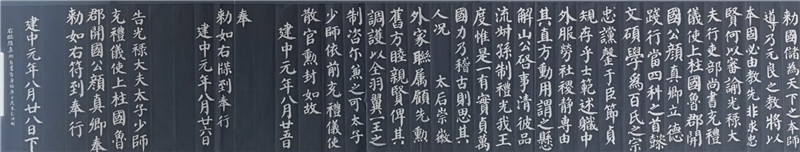 勅國儲為天下之本師
導乃元良之教將以
本固必由教先非求忠
賢何以審諭光祿大
夫行吏部尚書充禮
儀使上柱國魯郡開
國公顏真卿立德
踐行當四科之首懿
文碩學為百氏之宗
忠讜罄于臣節貞
規存乎士範述職中
外服勞社稷靜專由
其直方動用謂之懸
解山公啟事清彼品
流叔孫制禮光我王
度惟是一有實貞萬
國力乃稽古則思其
人況 太后崇徽
外家聯屬顧先勳
舊方睦親賢俾其
調護以全羽翼一王之
制咨爾兼之可太子
少師依前充禮儀使
散官勳封如故
建中元年八月廿五日
奉
勅如右牒到奉行
建中元年八月廿六日
告光祿大夫太子少師
充禮儀使上柱國魯
郡開國公顏真卿奉
勅如右符到奉行
建中元年八月廿八日下
右臨顏真卿自書告身帖